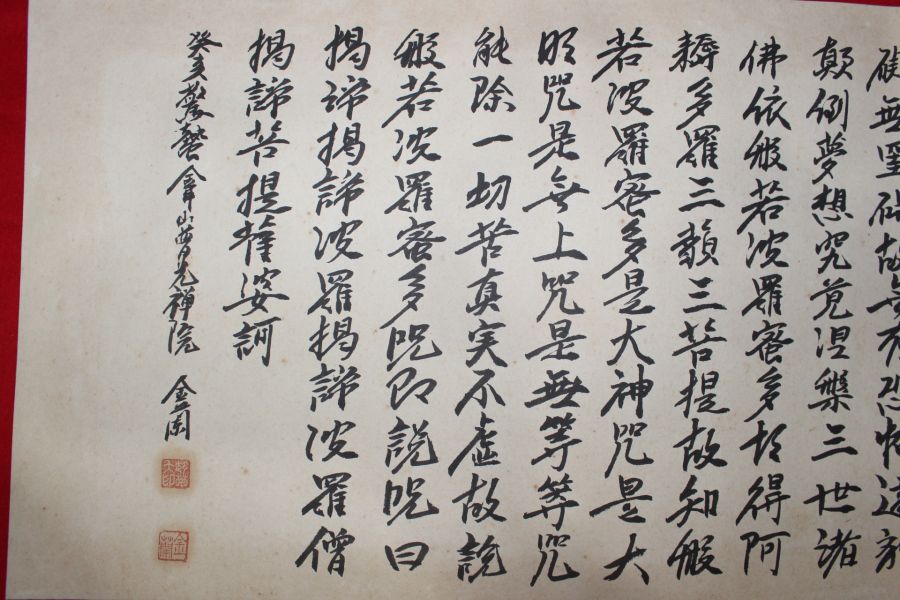 礙無罣礙故無有恐怖遠離
顛倒夢想究竟涅槃三世諸
佛依般若波羅蜜多故得阿
耨多羅三藐三菩提故知般
若波羅蜜多是大神咒是大
明咒是無上咒是無等等咒
能除一切苦真実不虚故説
般若波羅蜜多呪即説呪曰
揭諦揭諦波羅揭諦波羅僧
揭諦菩提薩婆訶
癸亥驚蟄山普光禅院 金蘭
金蘭